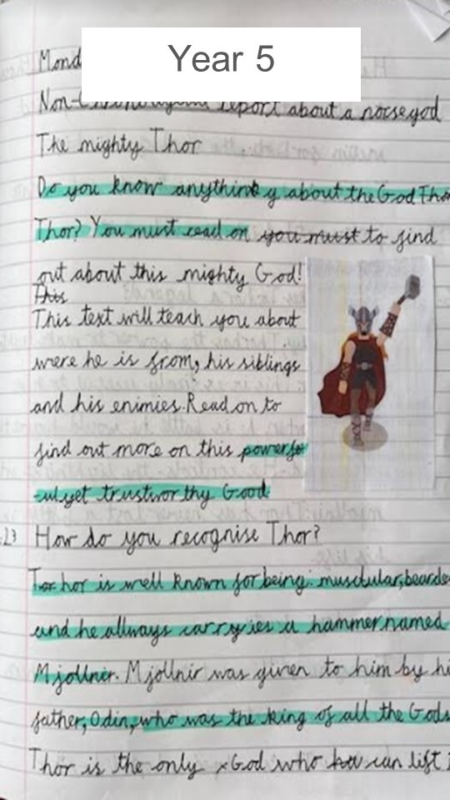 Year 5
Mond
Non-Chronological report about a norse god
The mighty Thor
Do you know anything y about the God Tho
Thor? You must read on you must to find
out about this mighty God!
This
This text will teach you about
were he is from, his siblings
and his enimies. Read on to
find out more on this powerfo
ul yet trustworthy Good
23 How do you recognise Thor?
Thor is well known for being musdular, bearde
and he allways carryies a hammer named
Mjollnir. Mjollnir was given to him by hi
father, Odin, who was the king of all the Gods
Thor is the only God who can lift